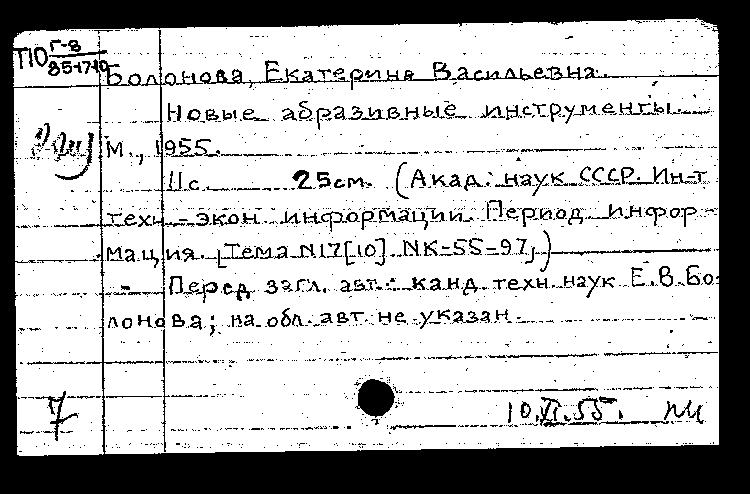 П10 Г-8
85-1710
Болонова, Екатерина Васильевна.
Новые абразивные инструменты.
М., 1955.
11с. 25см. (Акад. наук СССР. Ин-т
техн.-экон. информации. Период. инфор-
мация. [Тема N17[10] NK-55-97])
- Перед загл. авт.: канд. техн. наук Е.В. Бо-
лонова; на обл. авт. не указан.
7
10.XI.55.